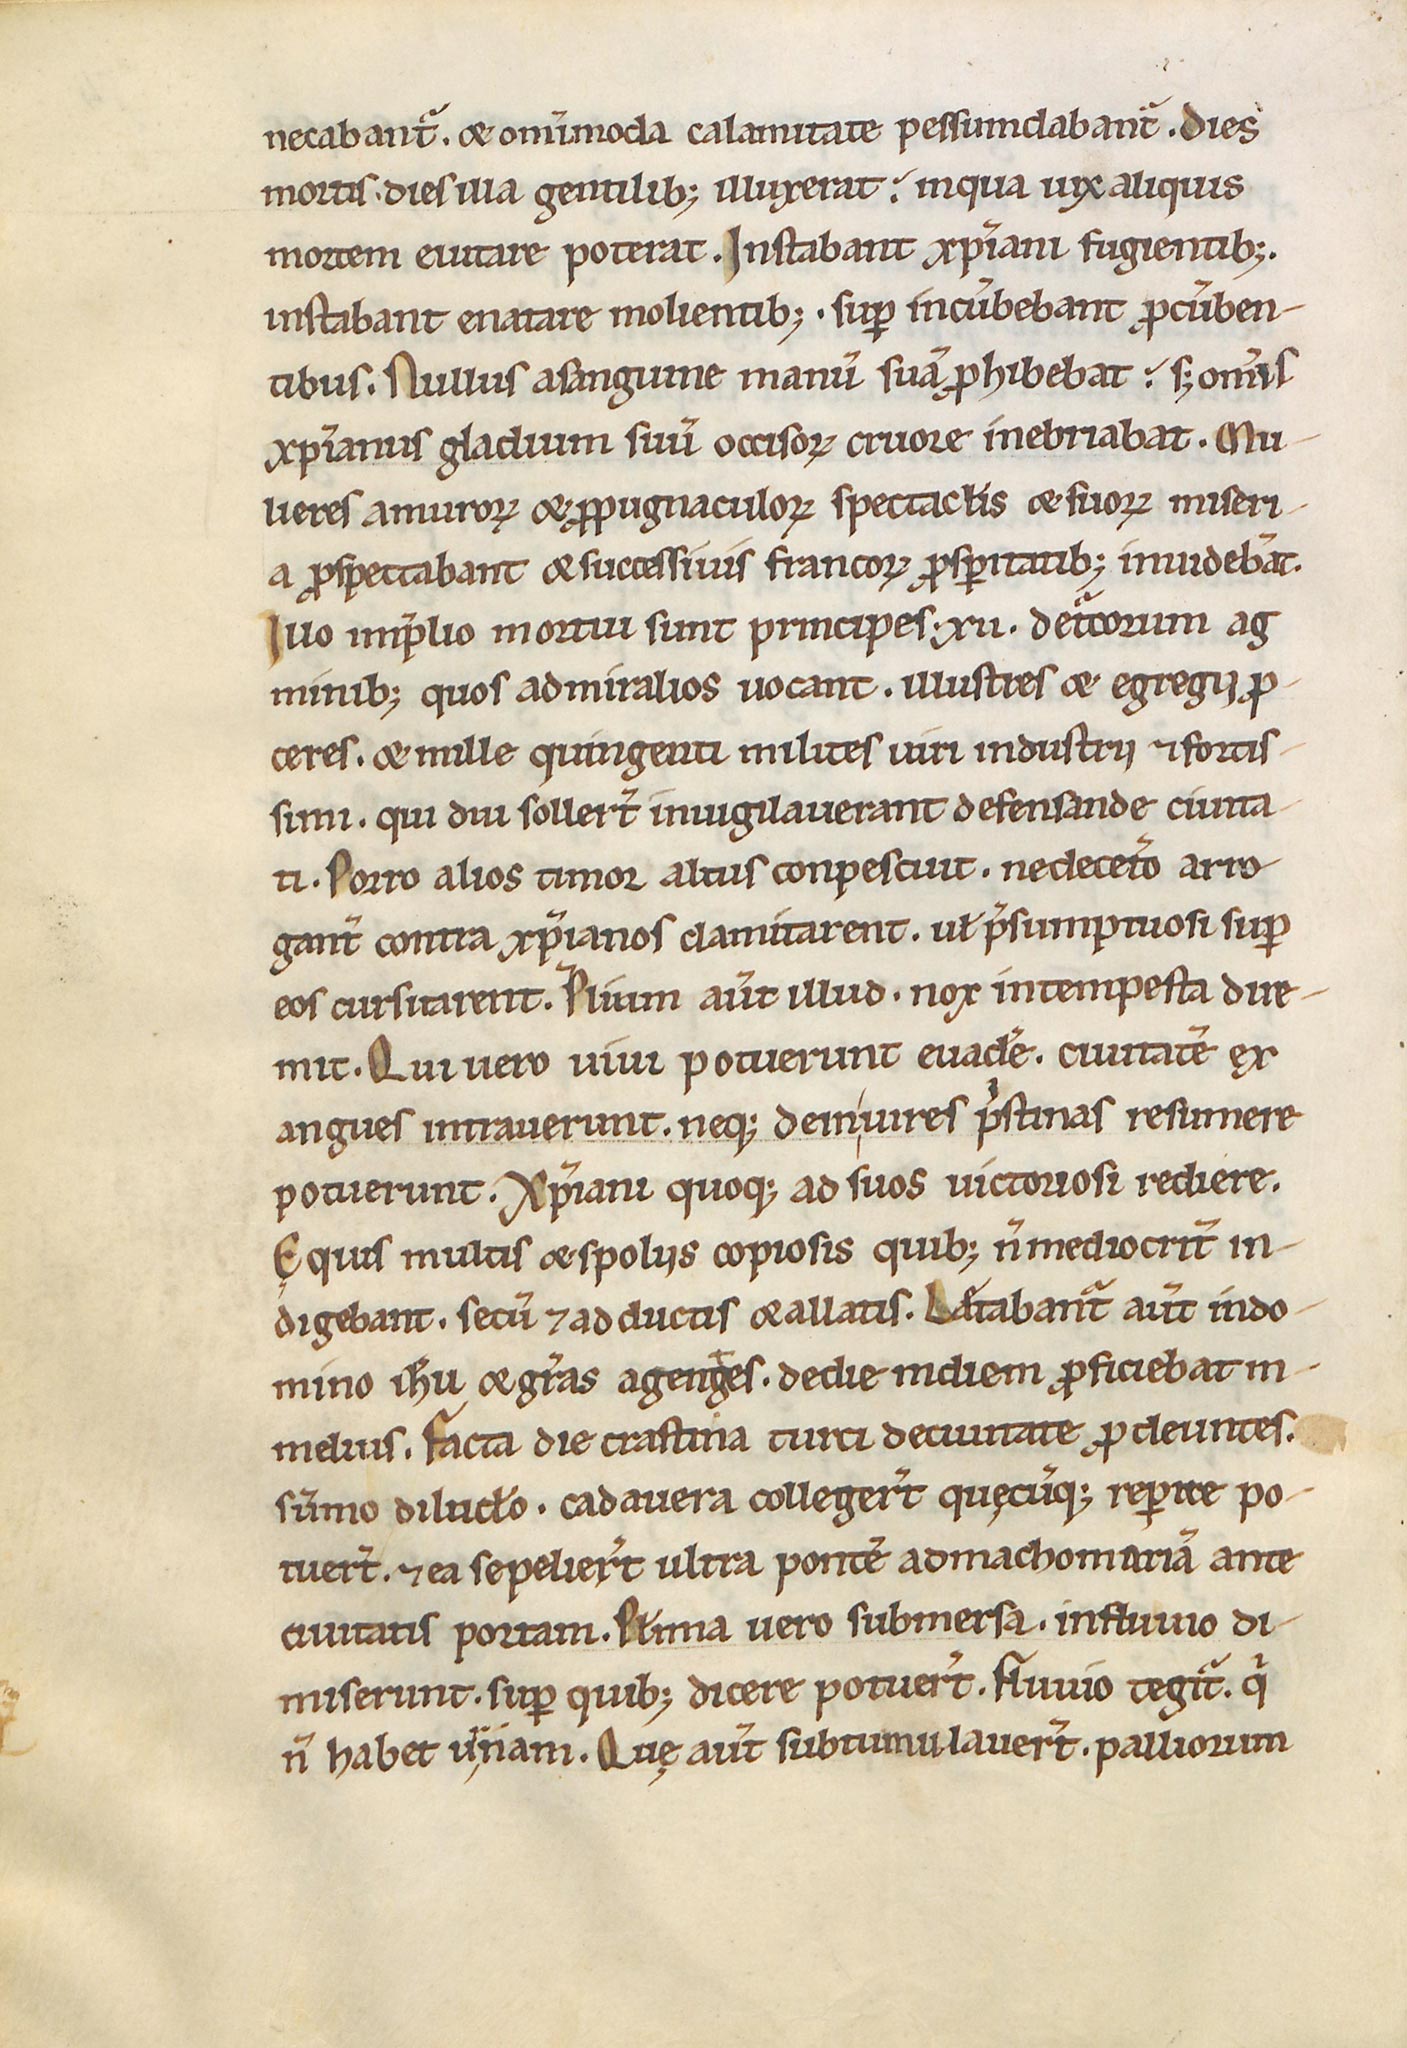 necabant᷑. & om̄imoda calamitate pessumdabant᷑. Dies
mortis. dies illa gentilib; illuxerat: inqua uix aliquis
mortem euitare poterat. Instabant xp̄iani fugientib;.
instabant enatare molientib;. suꝑ incūbebant ꝓcūben-
tibus. Nullus asanguine manū suā ꝓhibebat: s; om̄is
xp̄ianus gladium suū occisoꝝ cruore inebriabat. Mu-
lieres amuroꝝ & ꝓpugnaculoꝝ spectaclis & suoꝝ miseri-
a ꝓspectabant & successiuis francoꝝ ꝓsꝑitatib; inuidebāt.
Iuo imp̄lio mortui sunt principes. xii. det᷑corum ag
minib; quos admiralios uocant. illustres & egregij ꝓ-
ceres. & mille quingenti milites uiri industrij ⁊ fortis-
simi. qui diu sollert̄ inuigilauerant defensande ciuita-
ti. Porro alios timor altus conpescuit. nedecet̄o arro-
gant̄ contra xp̄ianos clamitarent. ul̄ p̄sumptuosi suꝑ
eos cursitarent. P̄lium aūt illud. nox intempesta dire-
mit. Qui uero uiui potuerunt euadē. ciuitatē ex
angues intrauerunt. neq; dein uires p̄stinas resumere
potuerunt. Xp̄iani quoq; ad suos uictoriosi rediere.
Equis multis & spolijs copiosis quib; n̄ mediocrit̄ in-
digebant. secū ⁊ adductis & allatis. Lætabant᷑ aūt indo-
mino ih̄u & gr̄as agentes. dedie indiem ꝓficiebat in-
melius. Facta die crastina turci deciuitate ꝓdeuntes.
sūmo diluclo. cadauera colleger̄t quęcūq; reꝑire po-
tuer̄t. ⁊ ea sepelier̄t ultra pontē admachomariā ante
ciuitatis portam. Pl̄ima uero submersa. influuio di-
miserunt. suꝑ quib; dicere potuer̄t. Fluuio tegit᷑. qͥ
n̄ habet urnam. Quę aūt subtumulauer̄t. palliorum